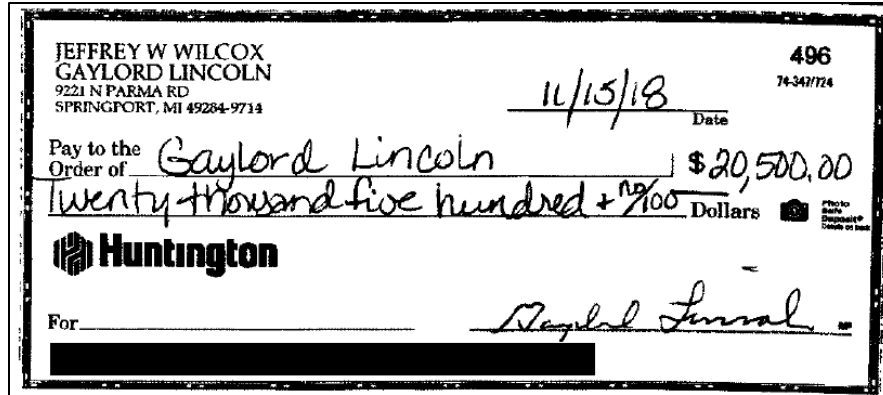 JEFFREY W WILCOX
GAYLORD LINCOLN
9221 N PARMA RD
SPRINGPORT, MI 49284-9714
496
74-347/724
11/15/18
Date
Pay to the
Order of Gaylord Lincoln $20,500.00
Twenty thousand five hundred + no/100 Dollars
Photo
Safe
Deposit®
Details on back
Huntington
For
Gaylord Lincoln
MP